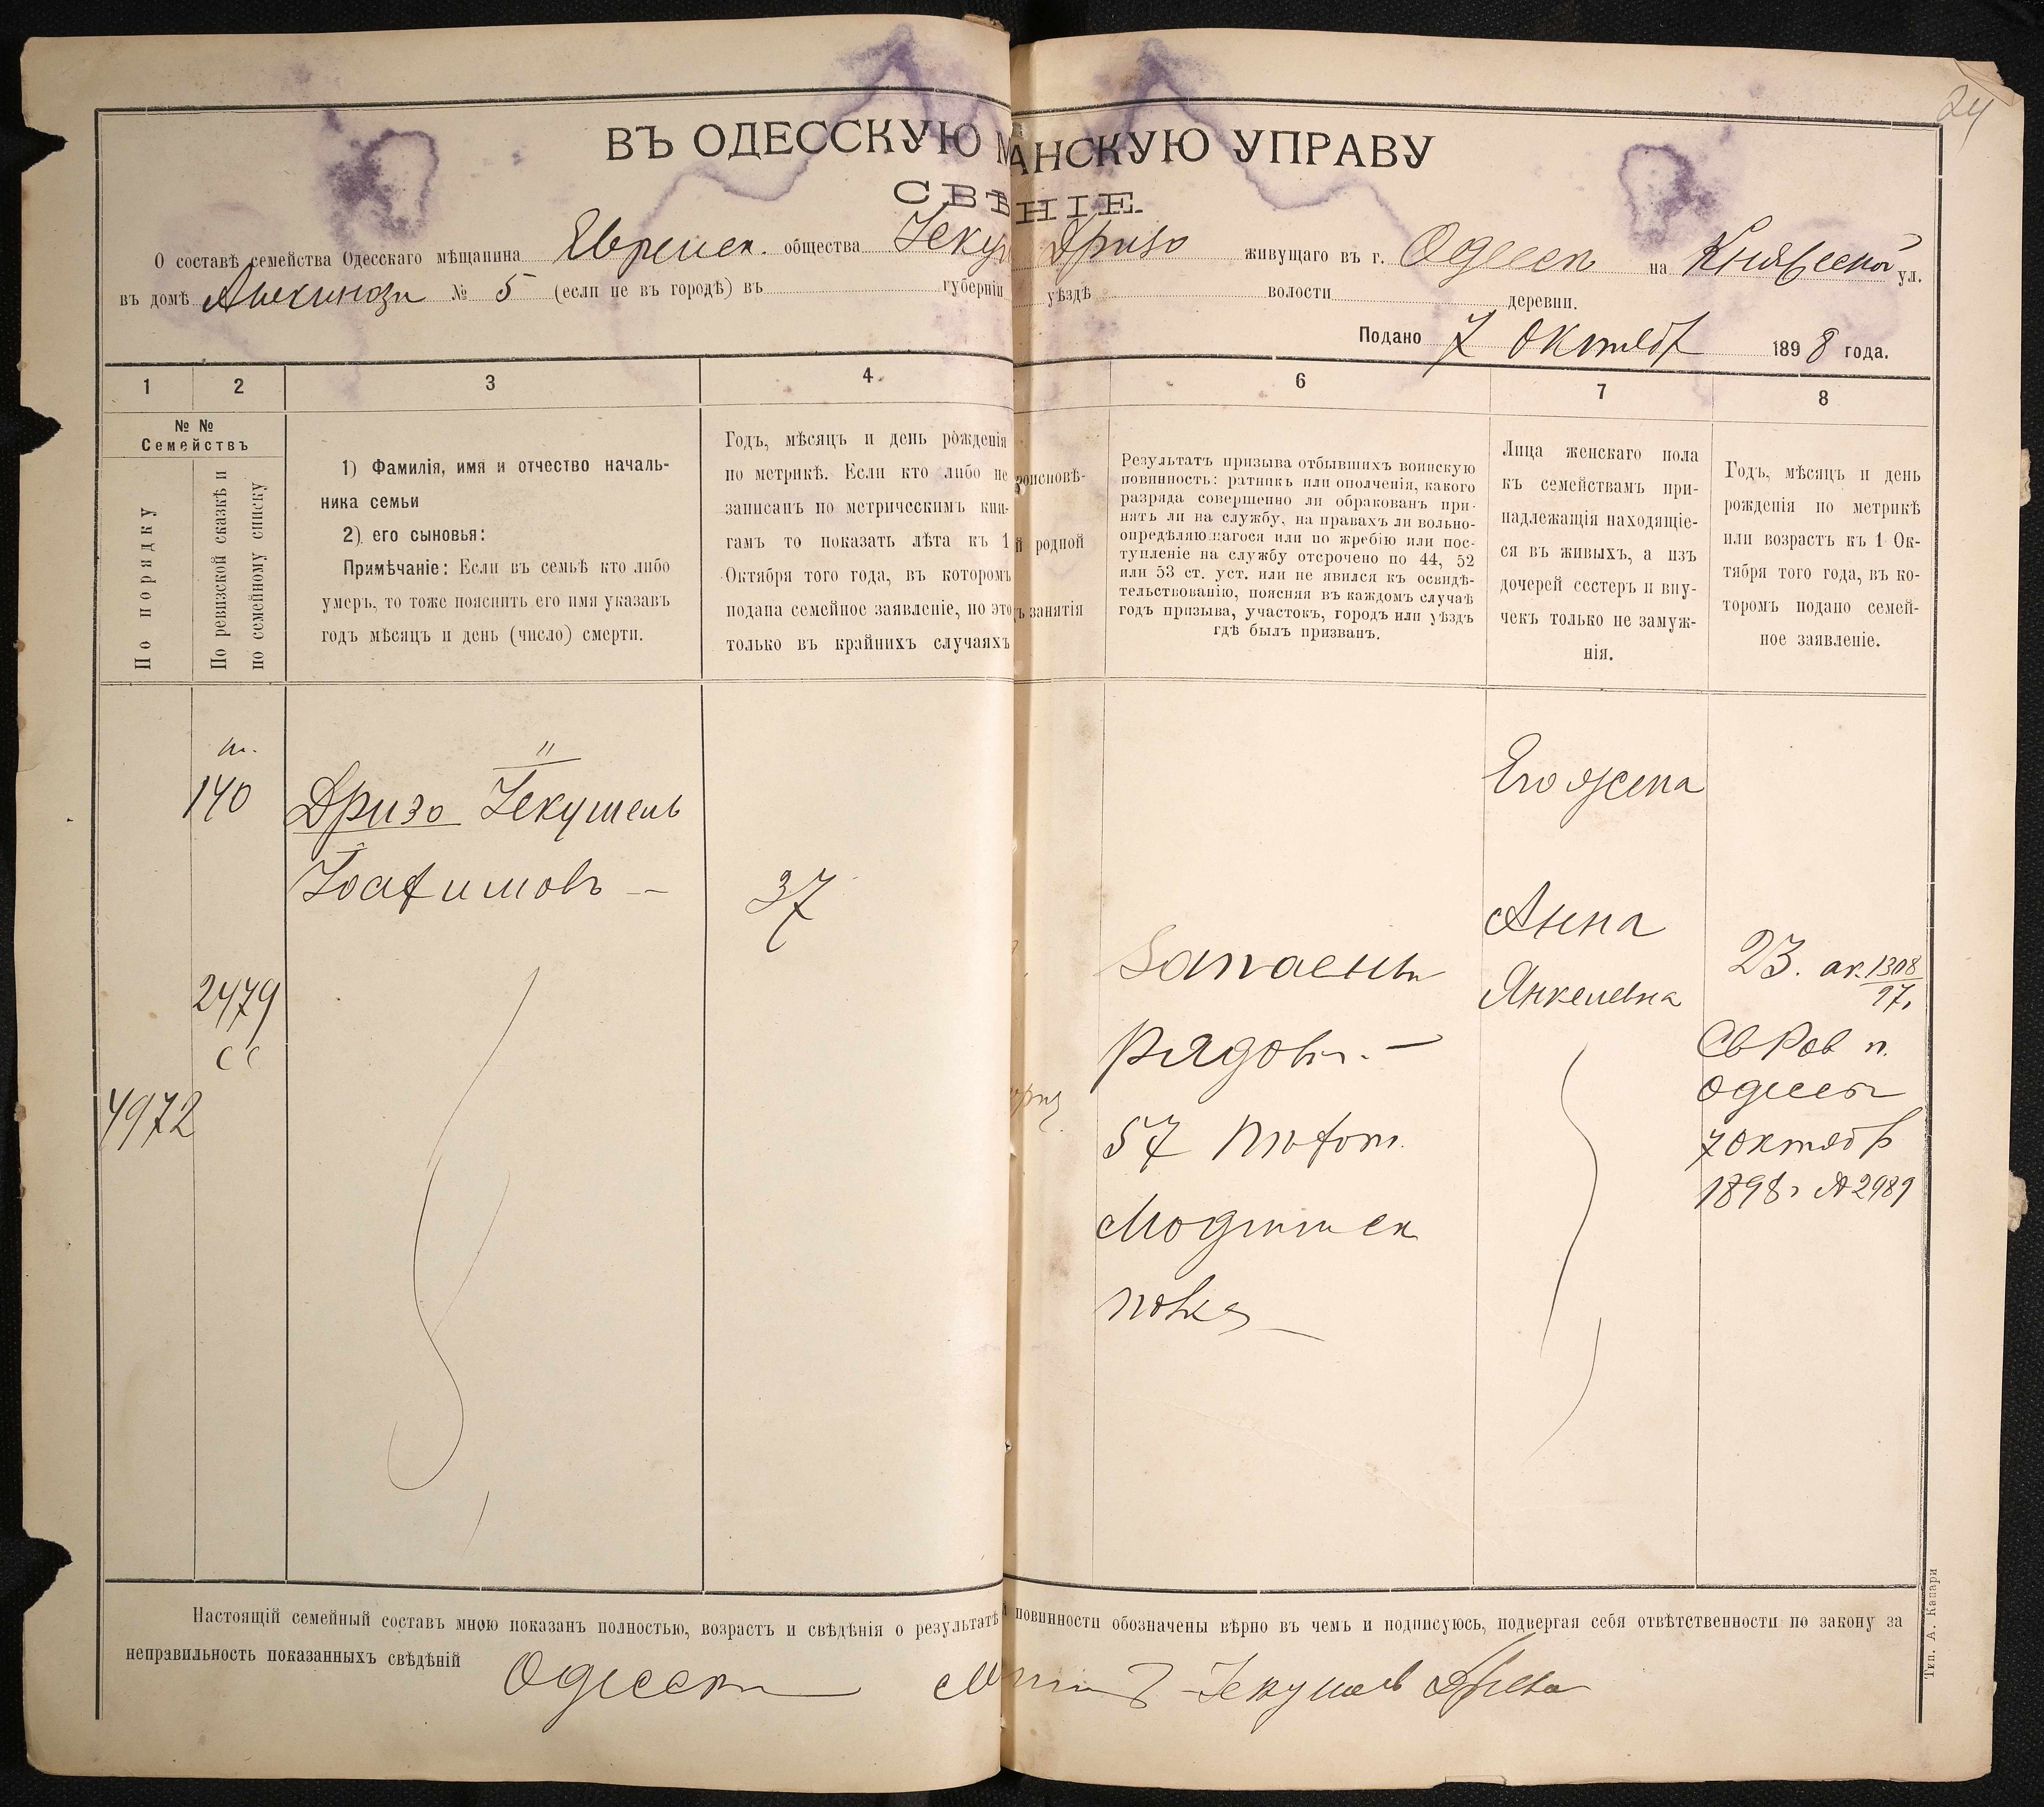 24
ВЪ ОДЕССКУЮ М АНСКУЮ УПРАВУ
СВѢ НІЕ.
О составѣ семейства Одесскаго мѣщанина Еврейск. общества Іекуш Дризо живущаго въ г. Одессѣ на Княжеской ул.
въ домѣ № 5 (если не въ городѣ) въ губерніи уѣздѣ волости деревни.
Подано 7 Октяб 1898 года.
1 2 3 4 6 7 8
№ №
Семействъ
По порядку
По ревизской сказкѣ и
по семейному списку
1) Фамилія, имя и отчество началь-
ника семьи
2) его сыновья:
Примѣчаніе: Если въ семьѣ кто либо
умеръ, то тоже пояснить его имя указавъ
годъ мѣсяцъ и день (число) смерти.
Годъ, мѣсяцъ и день рожденія
по метрикѣ. Если кто либо не
записанъ по метрическимъ кни-
гамъ то показать лѣта къ 1
Октября того года, въ которомъ
подана семейное заявленіе, но это
только въ крайнихъ случаяхъ
роисповѣ-
й родной
ъ занятія
Результатъ призыва отбывшихъ воинскую
повинность: ратникъ или ополченія, какого
разряда совершенно ли обракованъ при-
нятъ ли на службу, на правахъ ли вольно-
опредѣляющагося или по жребію или пос-
тупленіе на службу отсрочено по 44, 52
или 53 ст. уст. или не явился къ освидѣ-
тельствованію, поясняя въ каждомъ случаѣ
годъ призыва, участокъ, городъ или уѣздъ
гдѣ былъ призванъ.
Лица женскаго пола
къ семействамъ при-
надлежащія находящіе-
ся въ живыхъ, а изъ
дочерей сестеръ и вну-
чекъ только не замуж-
нія.
Годъ, мѣсяцъ и день
рожденія по метрикѣ
или возрастъ къ 1 Ок-
тября того года, въ ко-
торомъ подано семей-
ное заявленіе.
140
2479
СС
4972
Дризо Іекушель
Іоахимовъ
37
Запасный
рядов.
57 пѣхот.
Модлинск
полка
Его жена
Анна
Янкелевна
23. ак. 1308
97.
Св Рав п.
Одессы
7 октяб
1898 г № 2989
Настоящій семейный составъ мною показанъ полностью, возрастъ и свѣдѣнія о результатѣ повинности обозначены вѣрно въ чемъ и подписуюсь, подвергая себя отвѣтственности по закону за
неправильность показанныхъ свѣдѣній Одесск Іекушель Дризо
Тип. А. Капари